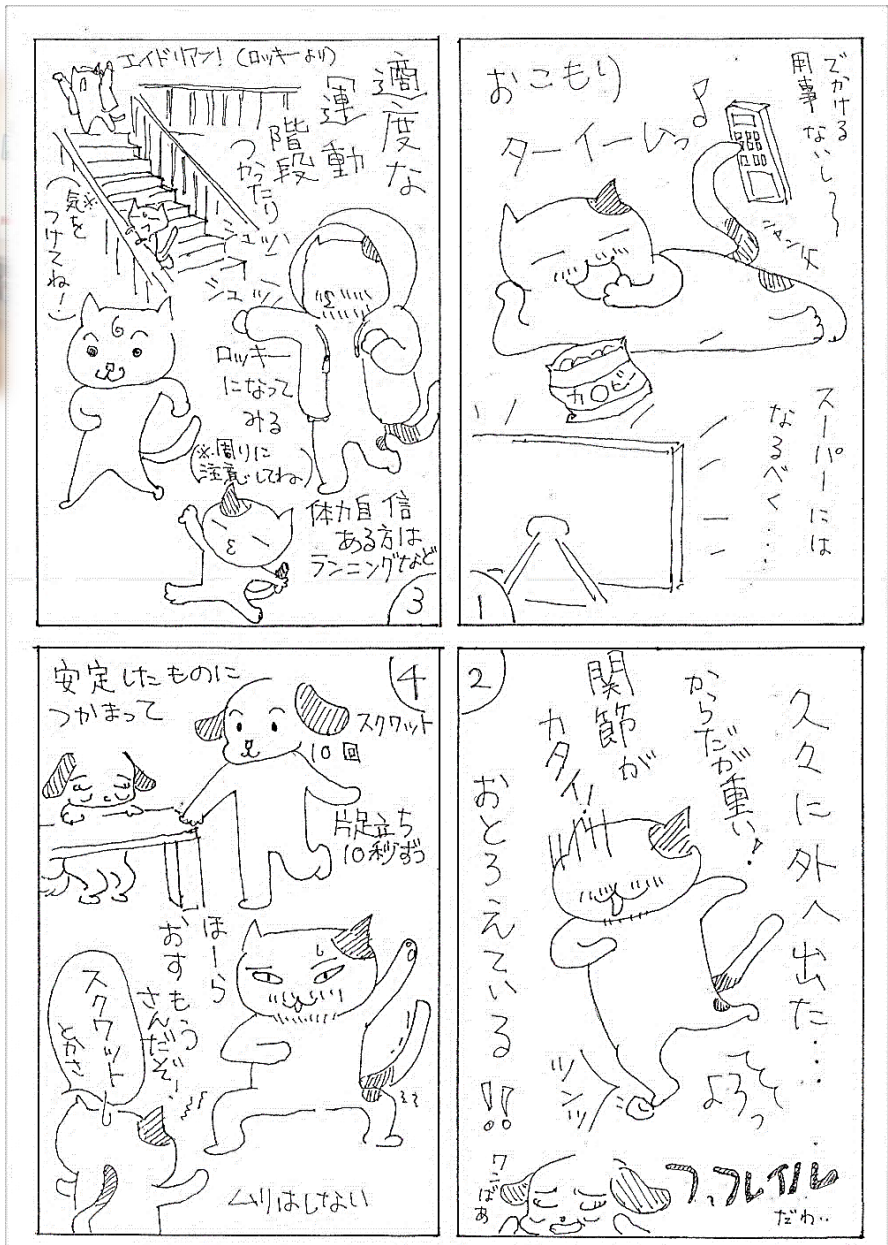 でかける
用事ないし〜〜
おこもり
ターイームっ♪
ニャンジイ
カ〇ビー
スーパーには
なるべく・・・
1
2
久々に外へ出た・・・
からだが重い!
関節が
カタイ!
おとろえている!!
ツンッ
よろっ
ワンばあ
フ、フレイル
だわ・・
エイドリアン!(ロッキーより)
適度な
運動
階段
つかったり
(※気を
つけてね!)
シュッ
シュッ
ロッキー
になって
みる
(※周りに
注意してね)
体力自信
ある方は
ランニングなど
3
4
安定したものに
つかまって
スクワット
10回
片足立ち
10秒ずつ
ほーら
おすもう
さんだぞー
スクワット
とかさ
ムリはしない